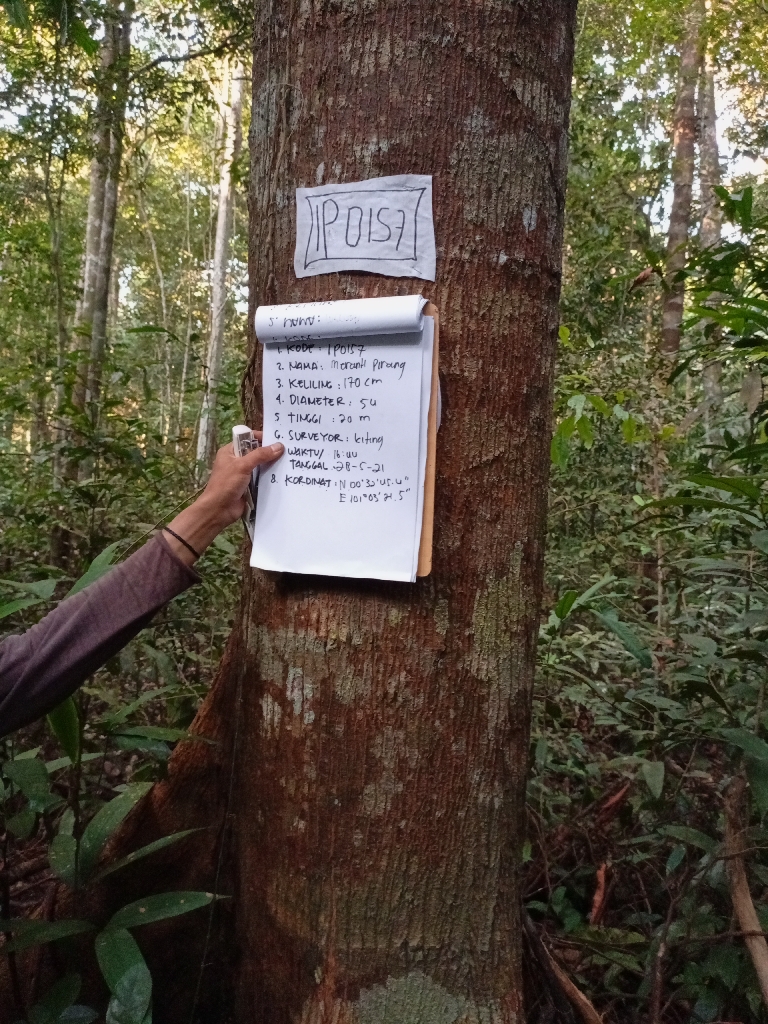 IP0157
5. NAMA:
1. KODE : IP0157
2. NAMA : Meranti Pirang
3. KELILING : 170 cm
4. DIAMETER : 54
5. TINGGI : 20 m
6. SURVEYOR : kiting
WAKTU/ 16:44
TANGGAL : 28-5-21
8. KORDINAT : N 00°32'45.4"
E 101°03'21.5"